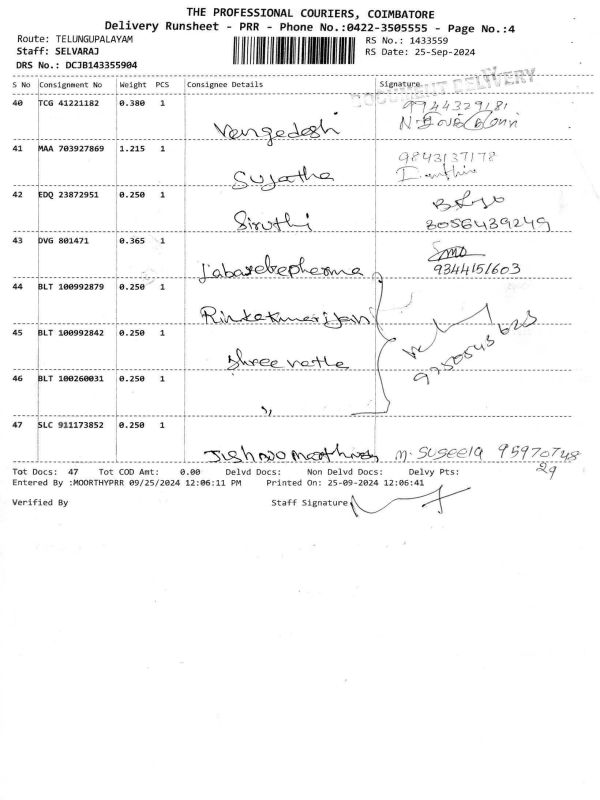 THE PROFESSIONAL COURIERS, COIMBATORE
Delivery Runsheet - PRR - Phone No.:0422-3505555 - Page No.:4
Route: TELUNGUPALAYAM
RS No.: 1433559
Staff: SELVARAJ
RS Date: 25-Sep-2024
DRS No.: DCJB143355904
S No Consignment No Weight PCS Consignee Details Signature
DOCUMENT DELIVERY
40 TCG 41221182 0.380 1
9944329181
Vengedesh
41 MAA 703927869 1.215 1
9843137178
Sujatha
42 EDQ 23872951 0.250 1
Siruthi 8056439249
43 DVG 801471 0.365 1
9344151603
44 BLT 100992879 0.250 1
45 BLT 100992842 0.250 1
Shree vatha
46 BLT 100260031 0.250 1
"
47 SLC 911173852 0.250 1
M. Suseela 95970748
29
Tot Docs: 47 Tot COD Amt: 0.00 Delvd Docs: Non Delvd Docs: Delvy Pts:
Entered By :MOORTHYPRR 09/25/2024 12:06:11 PM Printed On: 25-09-2024 12:06:41
Verified By Staff Signature